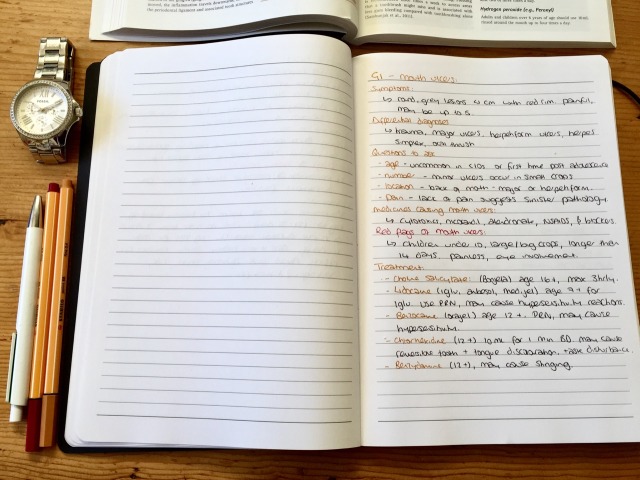 Hydrogen peroxide (e.g., Peroxyl)
GI - mouth ulcers:
Symptoms:
↳ round, grey lesions <1cm with red rim. painful,
may be up to 5.
Differential diagnoses
↳ trauma, major ulcers, herpetiform ulcers, herpes
simplex, oral thrush
Questions to ask
- age - uncommon in <10s. or first time post adolescence
- number - minor ulcers occur in small crops
- location - back of mouth - major or herpetiform.
- Pain - lack of pain suggests sinister pathology.
medicines causing mouth ulcers:
↳ cytotoxics, nicorandil, alendronate, NSAIDs, β blockers.
Red flags of mouth ulcers:
↳ children under 10, large/big crops, longer than
14 days, painless, eye involvement.
Treatment:
- Choline salicylate: (Bonjela) age 16+, max 3hrly.
- Lidocaine (iglu, anbesol, medijel) age 9+ for
iglu. Use PRN, may cause hypersensitivity reactions.
- Benzocaine (orajel) age 12+. PRN, may cause
hypersensitivity.
- Chlorhexidine (12+) 10ml for 1 min BD. may cause
reversible tooth + tongue discolouration, taste disturbance.
- Benzydamine (12+), may cause stinging.
FOSSIL